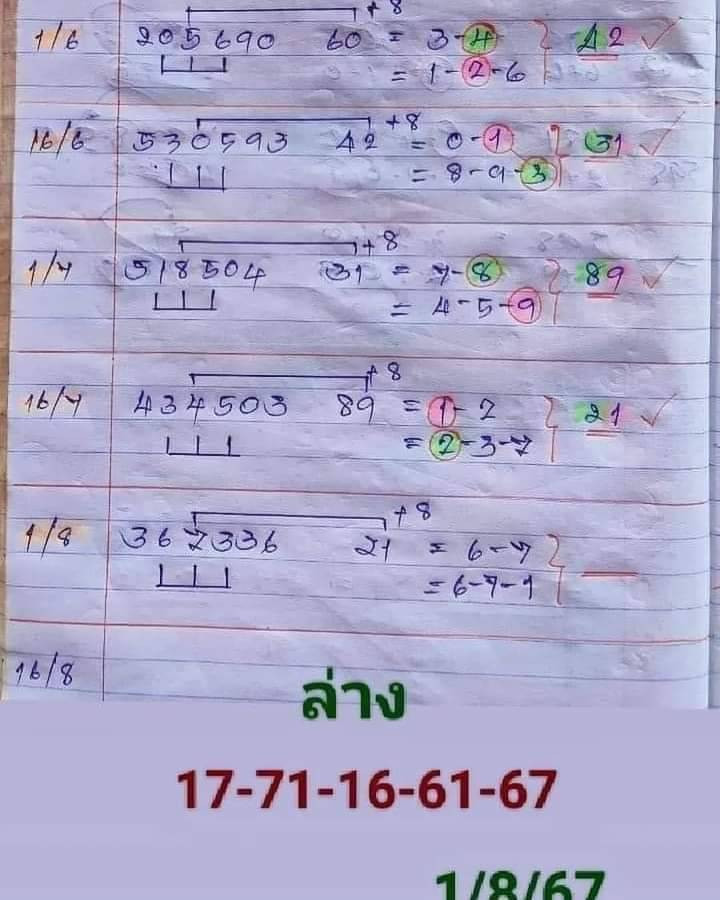 +8
1/6 205690 60 = 3-4 42 ✓
= 1-2-6
+8
16/6 530593 42 = 0-1 31 ✓
= 8-9-3
+8
1/7 518504 31 = 7-8 89 ✓
= 4-5-9
+8
16/7 434503 89 = 1-2 21 ✓
= 2-3-7
+8
1/8 367336 21 = 6-7
= 6-7-1
16/8
ล่าง
17-71-16-61-67
1/8/67